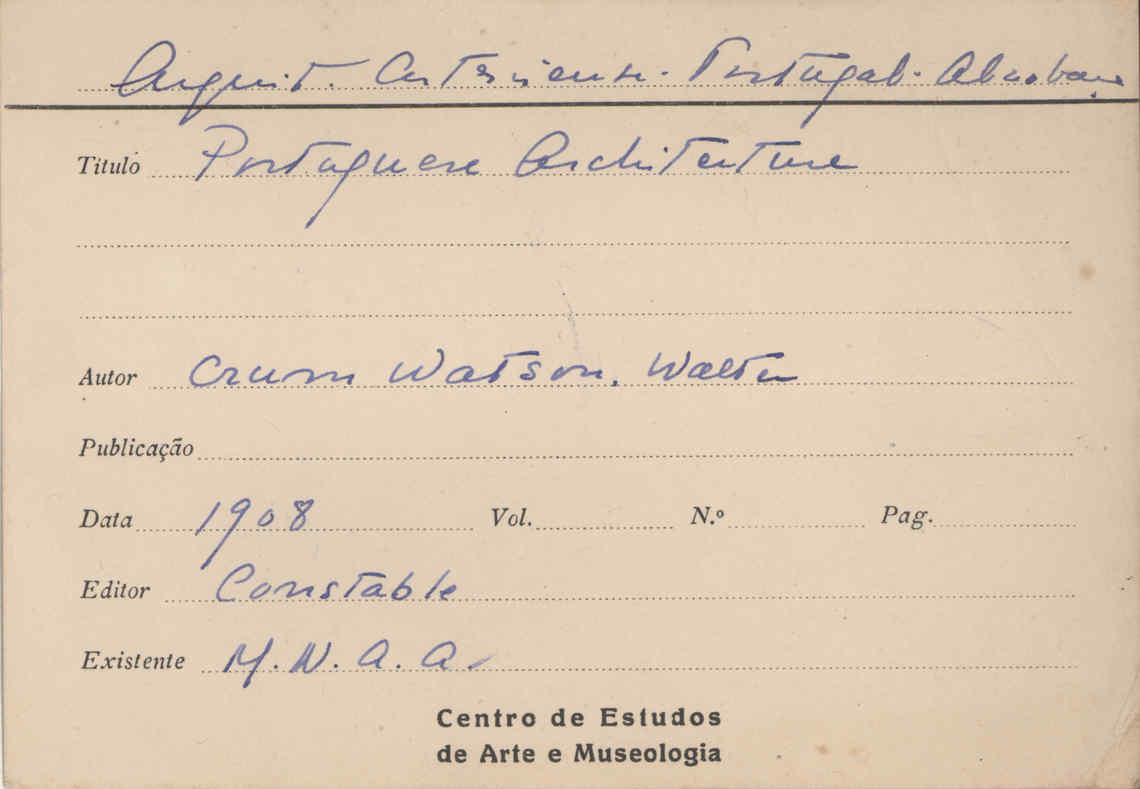 Arquit. Cisterciense. Portugal. Alcobaça
Título Portuguese Architecture
Autor Crum Watson, Walter
Publicação
Data 1908 Vol. N.º Pag.
Editor Constable
Existente M.N.A.A.
Centro de Estudos
de Arte e Museologia